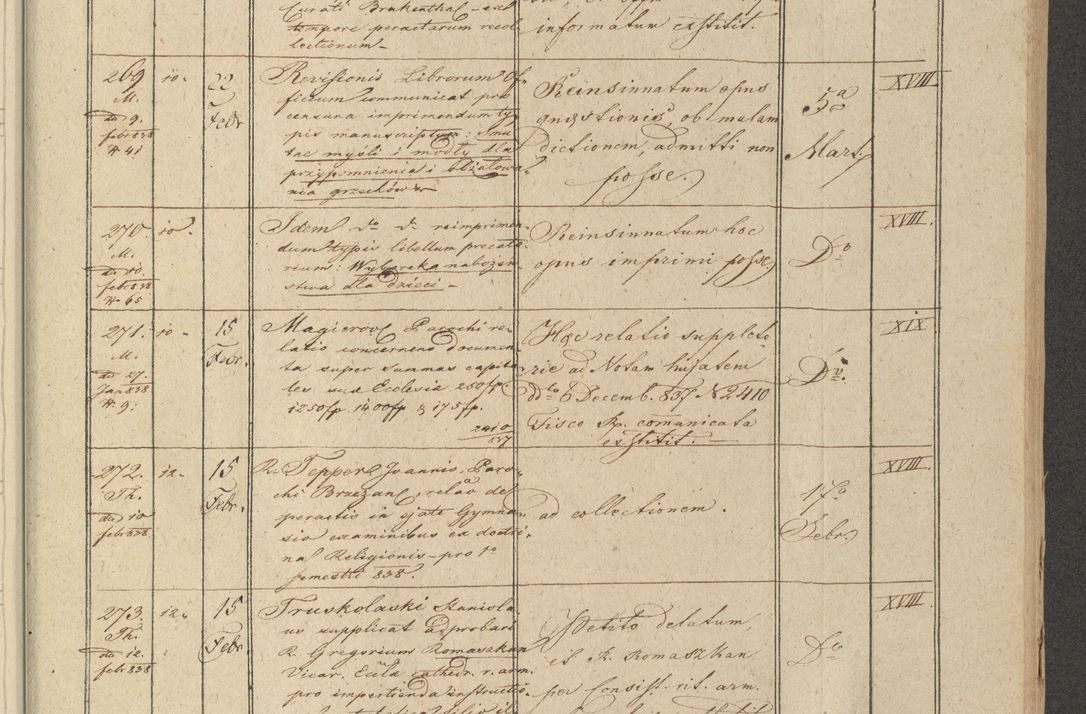 Curati Brukenthal
tempore peractarum recol-
lectionum
informatum exstitit.
269
M.
dto 9.
febr 838
N 41
10.
22
Febr
Revisionis Librorum Of-
ficium communicat pro
censura imprimendum ty-
pis manuscriptum: Smu-
tne myśli i modły dla
przypomnienia i
nia grzechów
Reinsinuatum opus
quaestionis, ob malam
dictionem, admitti non
posse.
5a
Mart.
XVIII
270
M.
dto 10.
febr 838
N 65
10.
Idem dto dto reimprimen-
dum typis libellum precato-
rium: Wyborek nabożeń-
stwa dla dzieci -
Reinsinuatum hoc
opus imprimi posse.
Do
XVIII.
271.
M.
dto 27.
Jan 838
N 9.
10.
15
Febr.
Magierov Parochi re-
latio concernens documen-
ta super summas capita-
les suae Ecclesiae 250 fr.
1250 fr. 1400 fr & 175 fr.
2410
837
Haec relatio suppleto-
rie ad Notam hujatem
ddto 6 Decemb. 837 N 2410
Fisco Rp. comunicata
exstitit.
Do.
XIX
272.
Th.
dto 10
febr 838
12.
15
Febr.
R. Tepper Joannis, Paro-
chi Brzezan, relao de
peractis in ejate Gymna-
sio examinibus ex doctri-
na Religionis - pro 1o
semestri 838.
ad collectionem.
17o
Febr.
XVIII.
273.
Th.
dto 12.
febr 838
12.
15
Febr.
Truskolaski Stanisla-
us supplicat adprobari
R. Gregorium Romaszkan
Vicar. Eccla cathedr. r. arm.
pro impertienda instructio-
Petito delatum,
et R. Romaszkan
per Consist. rit. arm.
Do
XVIII.